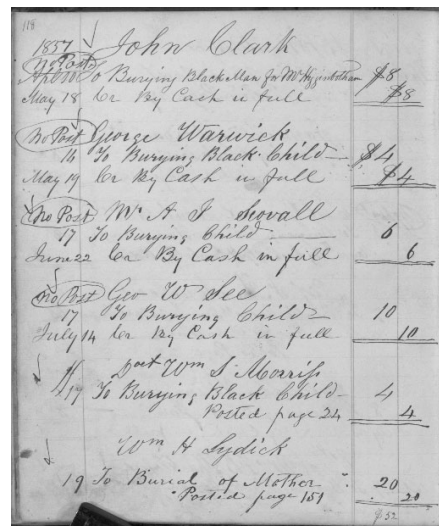 118
1857 John Clark
No Post
To Burying Black Man for Mr Higginbotham $8
May 18 Cr By Cash in full $8
No Post George Warwick
16 To Burying Black Child $4
May 19 Cr By Cash in full $4
No Post Mr A J Sovall
17 To Burying Child 6
June 22 Cr By Cash in full 6
No Post Geo W See
17 To Burying Child 10
July 14 Cr By Cash in full 10
Doct Wm S Morriss
17 To Burying Black Child 4
Posted page 24 4
Wm H Lydick
19 To Burial of Mother 20
Posted page 151 20
$52